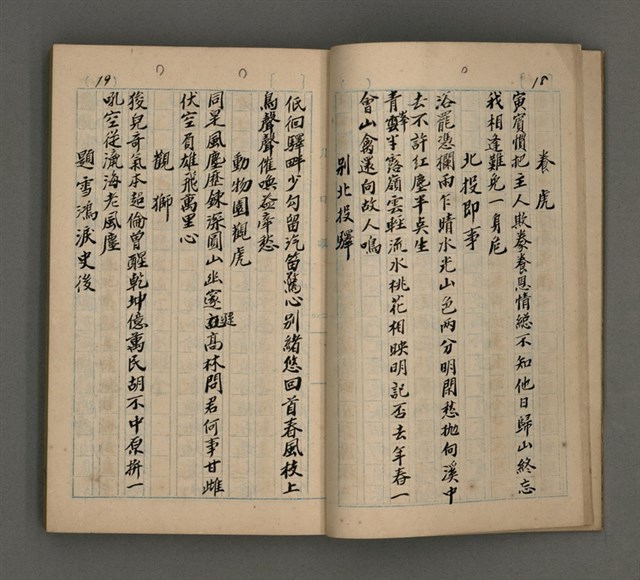 18
養虎
寅賓慣把主人欺豢養恩情總不知他日歸山終忘
我相逢難免一身危
北投即事
浴罷憑欄雨乍晴水光山色兩分明閑愁拋向溪中
去不許紅塵半臭生
青峰半露嶺雲輕流水桃花相映明記否去年春一
會山禽還向故人鳴
別北投驛
19
低回驛畔少勾留汽笛驚心別緒悠回首春風枝上
鳥聲聲催喚益牽愁
動物園觀虎
同是風塵歷鍊深圓山幽寂遜高林問君何事甘雌
伏空負雄飛萬里心
觀獅
狻兒奇氣本超倫曾醒乾坤億萬民胡不中原拚一
吼空從瀛海老風塵
題雪鴻淚史後